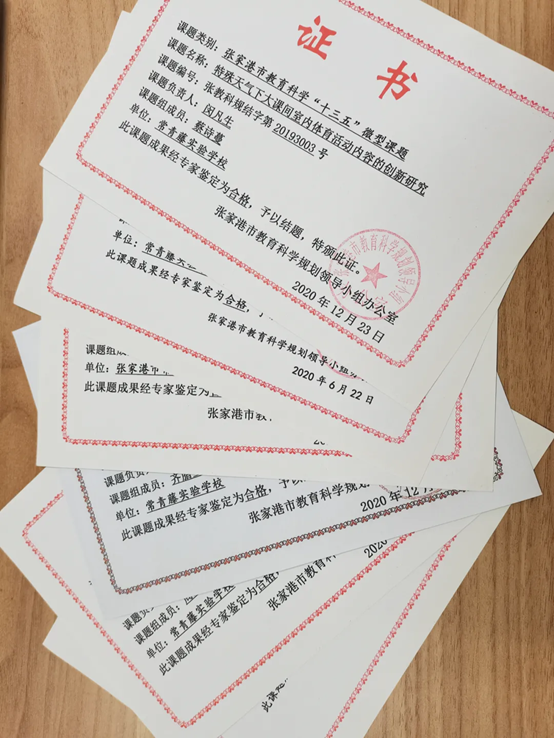 证书
课题类别：张家港市教育科学“十三五”微型课题
课题名称：特殊天气下大课间室内体育活动内容的创新研究
课题编号：张教科规结字第20193003号
课题负责人：闵凡生
课题组成员：蔡诗蔓
单位：常青藤实验学校
此课题成果经专家鉴定为合格，予以结题，特颁此证。
张家港市教育科学规划领导小组办公室
2020年12月23日
单位：常青藤
此课题成果经专家鉴定为合格，
张家港市教育科学规划领导小组
2020年6月22日
课题组
单位：张家港市
此课题成果经专家鉴定为
张家港市教
课题负责
课题组成员：齐
单位：常青藤实验学校
此课题成果经专家鉴定为合格，予以
张家港市教育科学规划
2020年12
课题负责
课题组成员：
单位：常青藤实验学校
此课题成果经专家鉴定为合格，
张家港市教育科学
2020
此课题